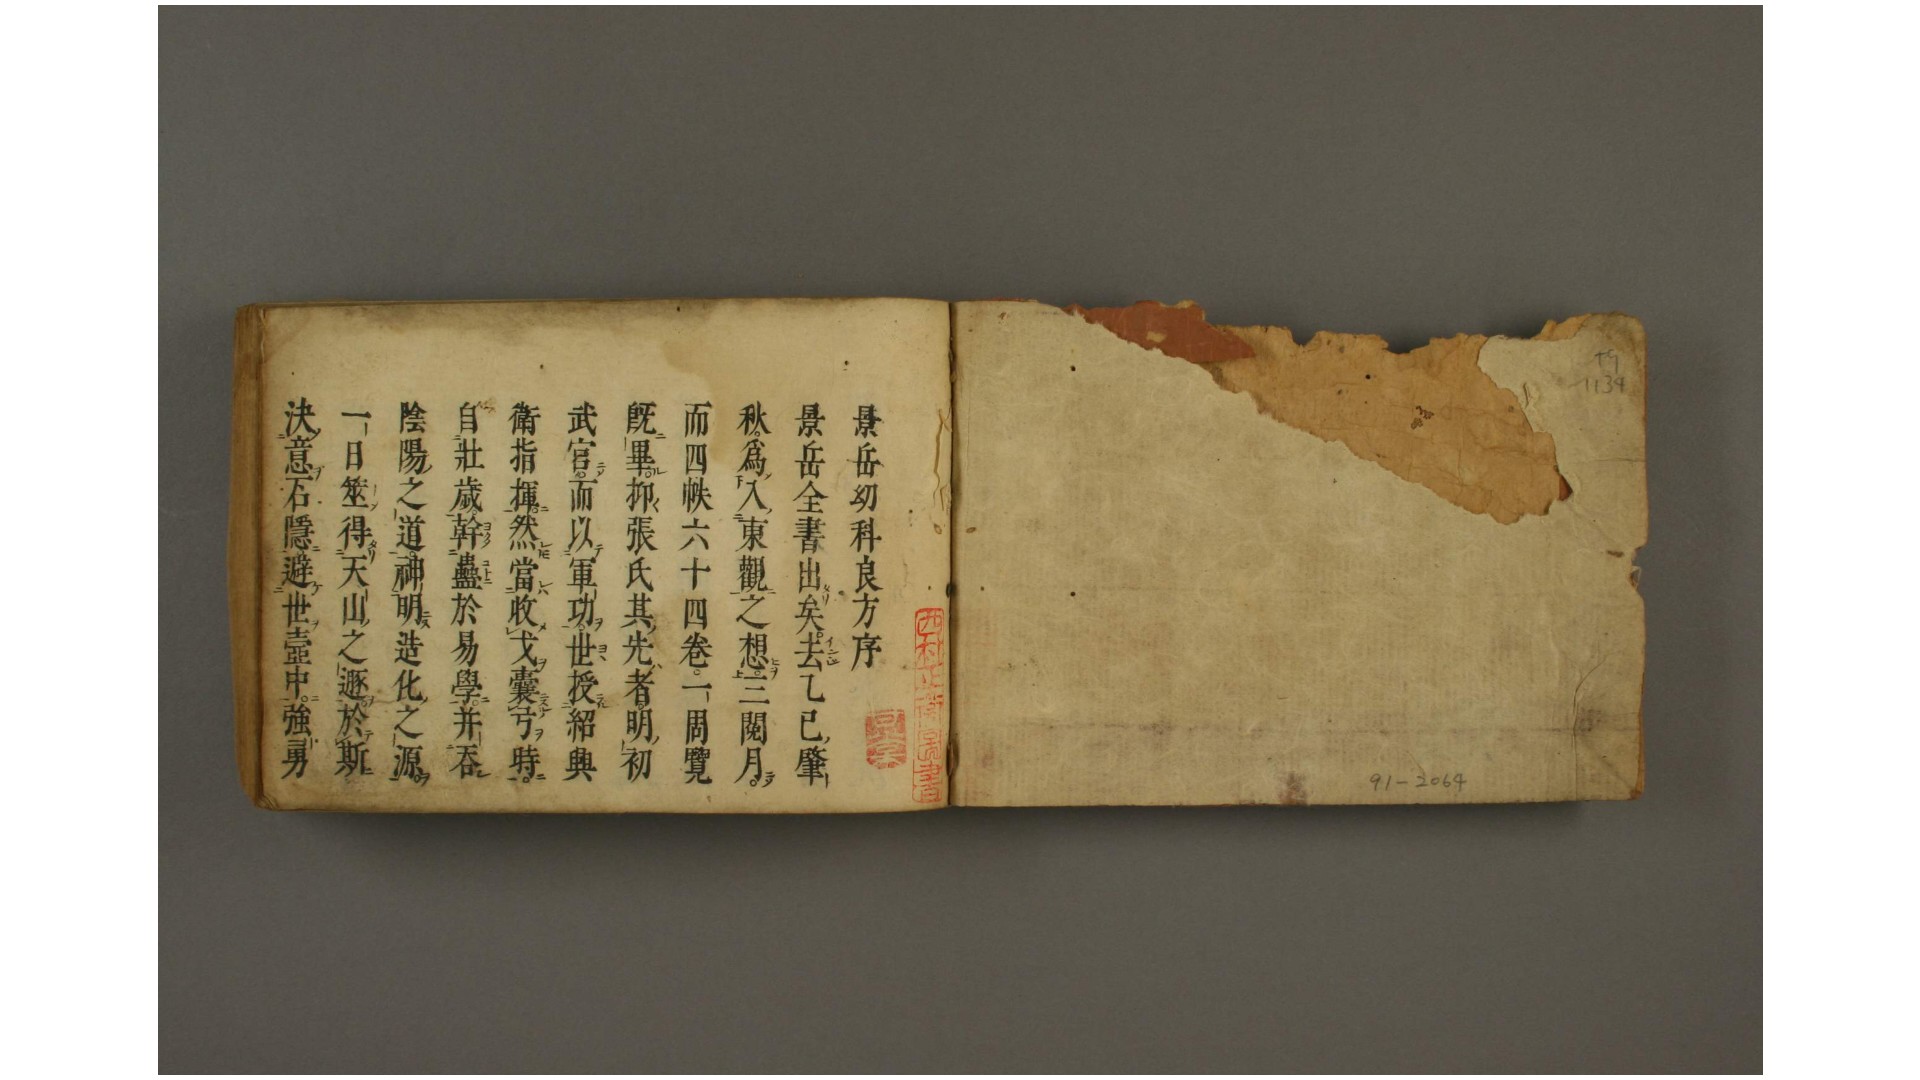 景岳幼科良方序
景岳全書出矣。去乙巳肇
秋。為入東觀之想。三閲月。
而四帙六十四卷。一周覽
既畢。抑張氏其先者。明初
武官。而以軍功。世授紹興
衛指揮。然當收戈囊弓時。
自壯歲。幹蠱於易學。并吞
陰陽之道。神明造化之源。
一日筮得天山之遯。於斯
決意石隱。避世壺中。強勇
1134
91-2064